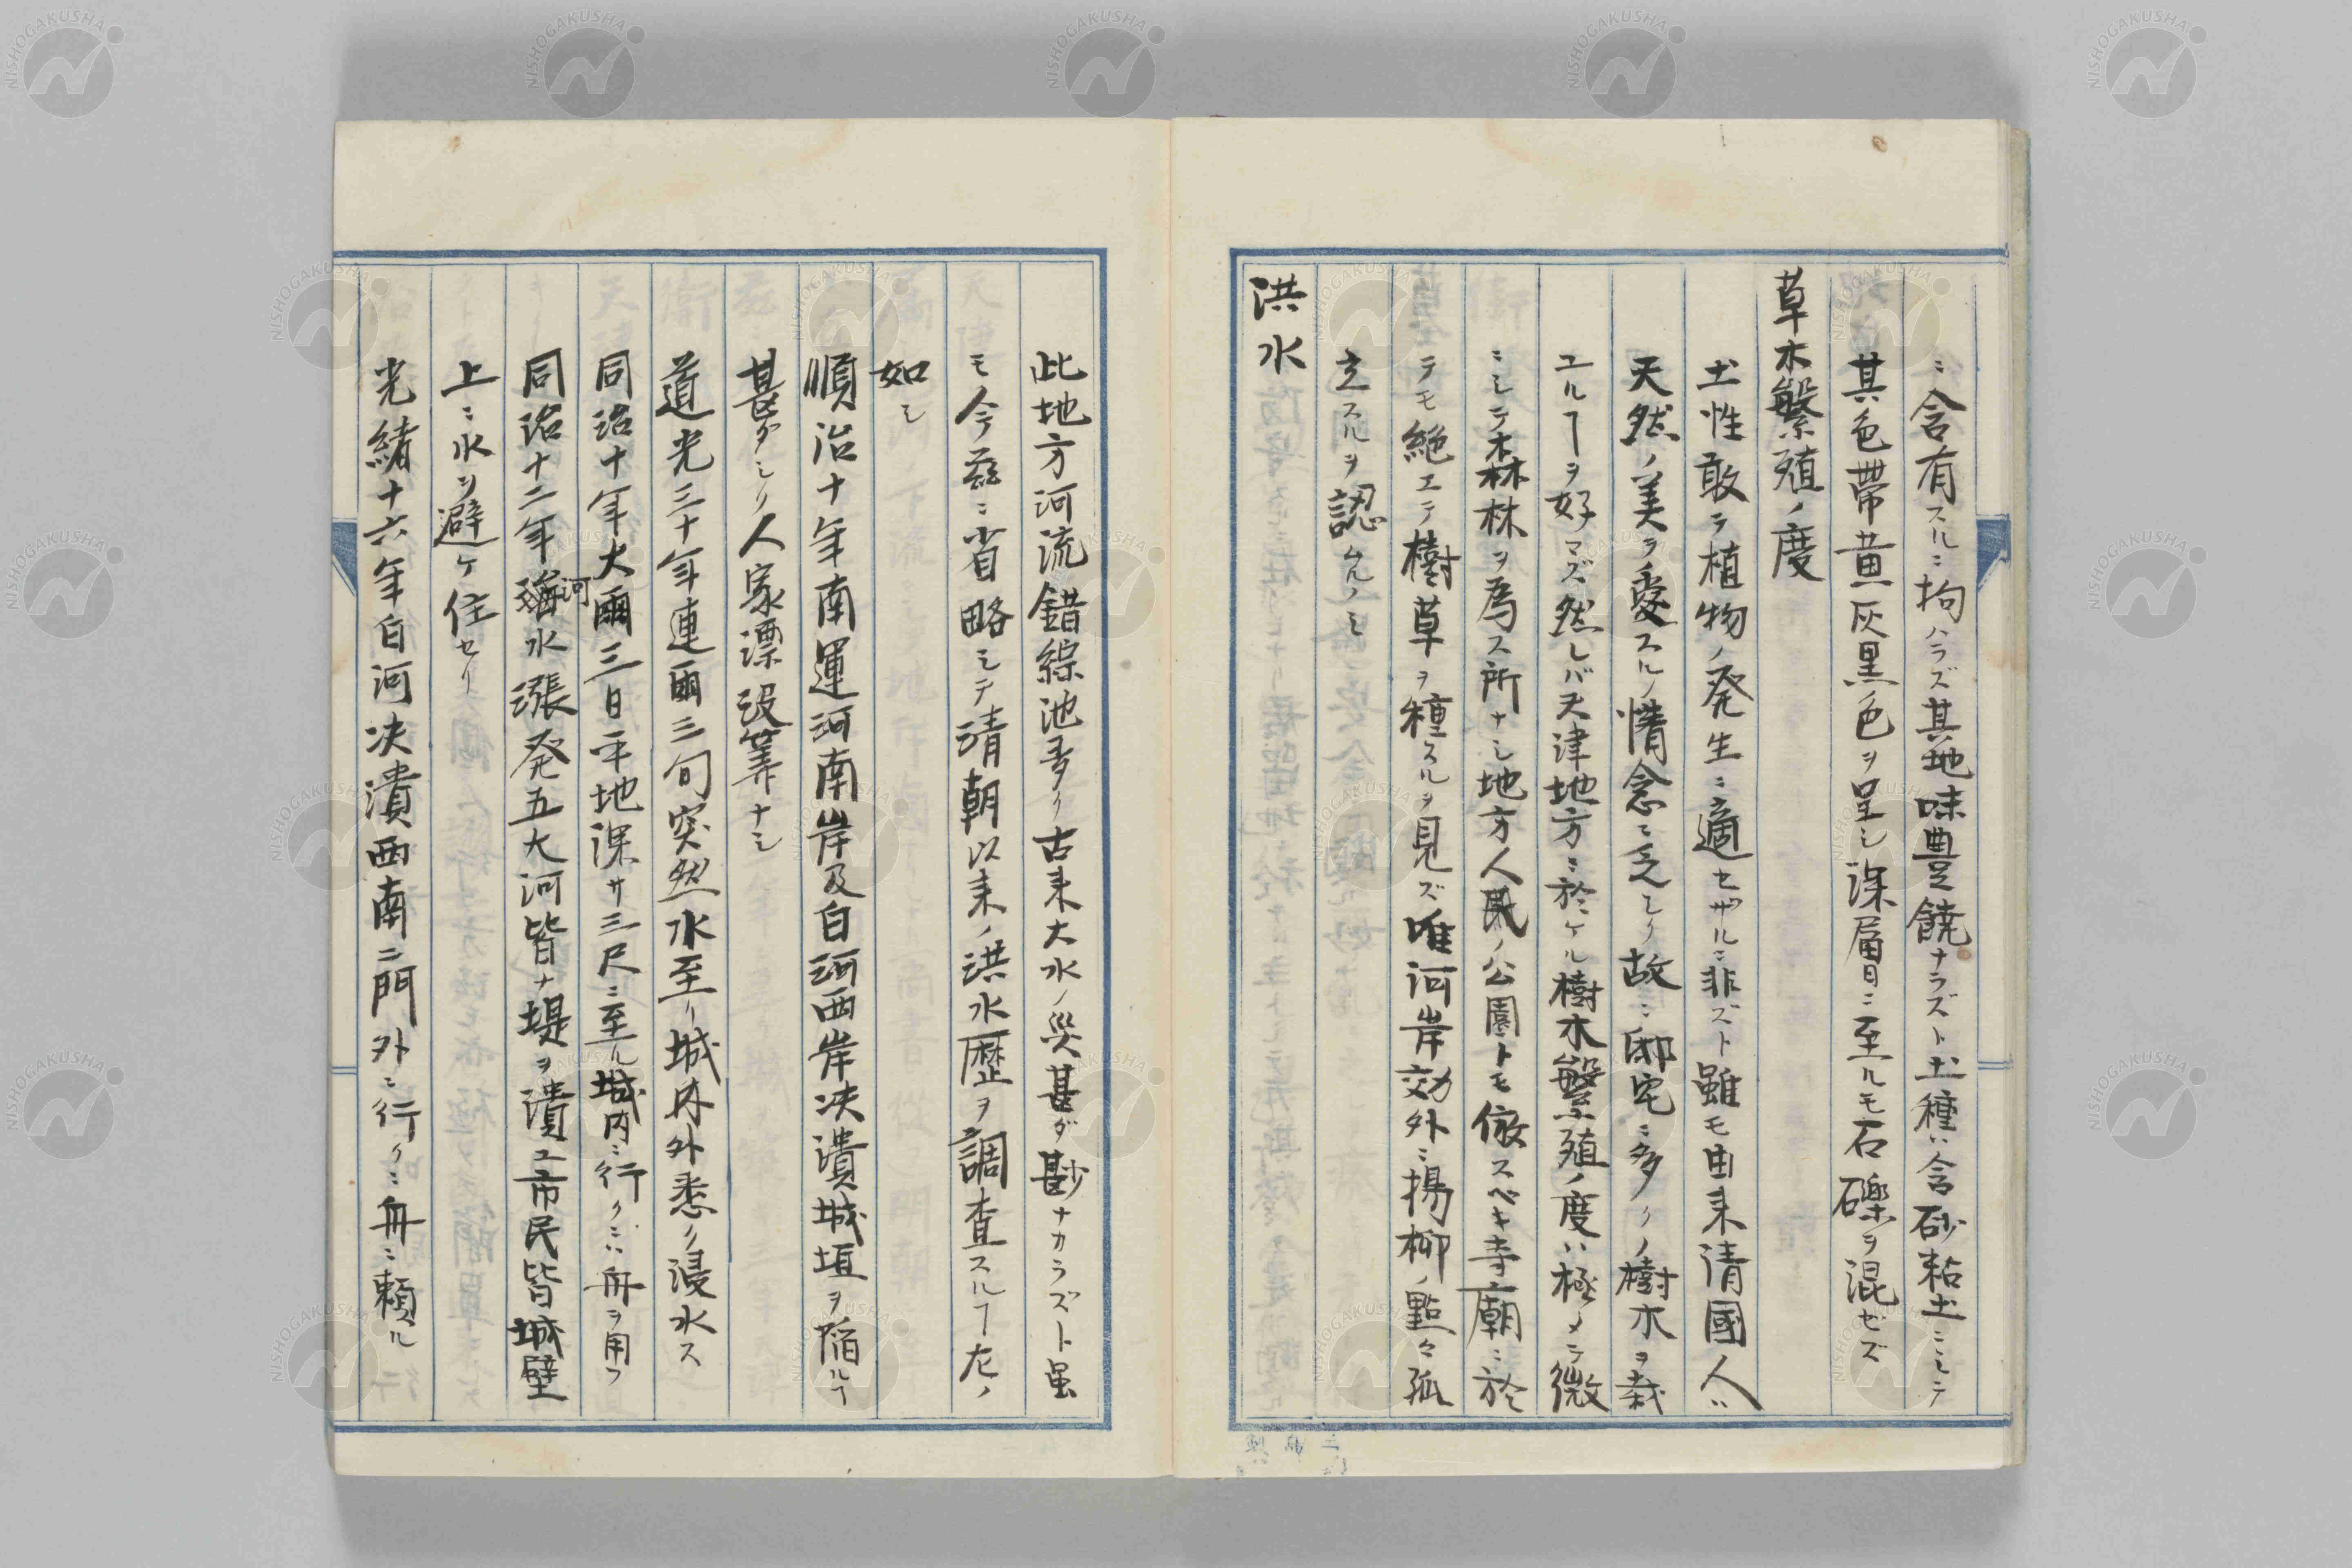 ニ含有スルニ拘ハラズ其地味豊饒ナラズト土種ハ含砂粘土ニシテ
其色帯黄灰黒色ヲ呈シ深層ニ至ルモ石礫ヲ混ゼズ
草木繁殖ノ度
土性敢テ植物ノ発生ニ適セザルニ非ズト雖モ由来清國人ハ
天然ノ美ヲ愛スルノ情念ニ乏シク故ニ邸宅ニ多クノ樹木ヲ栽
ユルヿヲ好マズ然レバ天津地方ニ於ケル樹木繁殖ノ度ハ極メテ微
ニシテ森林ヲ為ス所ナシ地方人民ノ公園トモ倣スベキ寺廟ニ於
テモ絶エテ樹草ヲ種スルヲ見ズ唯河岸効外ニ揚柳ノ點々孤
立スルヲ認ムルノミ
洪水
此地方河流錯綜池多ク古来大水ノ災甚ダ尠ナカラズト虽
モ今茲ニ省略シテ清朝以来ノ洪水歴ヲ調査スルヿ左ノ
如シ
順治十年南運河南岸及白河西岸决潰城垣ヲ陥ルヿ
甚ダシク人家漂没算ナシ
道光三十年連雨三旬突然水至リ城内外悉ク浸水ス
同治十年大雨三日平地深サ三尺ニ至ル城内ニ行クニハ舟ヲ用フ
同治十二年海河水漲発五大河皆ナ堤ヲ潰エ市民皆城壁
上ニ水ヲ避ケ住セリ
光緒十六年白河决潰西南二門外ニ行クニ舟ニ頼ル